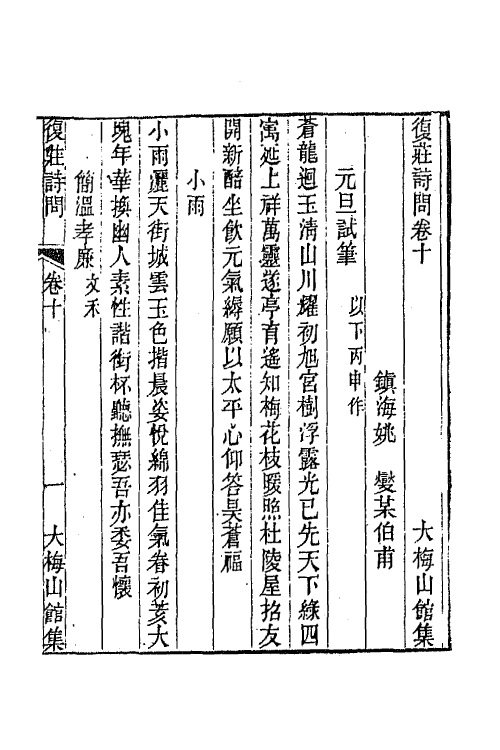 復莊詩問卷十
大梅山館集
鎮海姚 燮某伯甫
元旦試筆 以下丙申作
蒼龍迴玉清山川燿初旭宮樹浮露光已先天下綠四
寓延上祥萬靈遂亭育遙知梅花枝暖照杜陵屋招友
開新醅坐飲元氣縟願以太平心仰答昊蒼福
小雨
小雨灑天街城雲玉色揩晨姿悅綿羽佳氣眷初荄大
塊年華換幽人素性諧銜杯聽撫瑟吾亦委吾懷
簡溫孝廉文禾
復莊詩問
卷十
一
大梅山館集